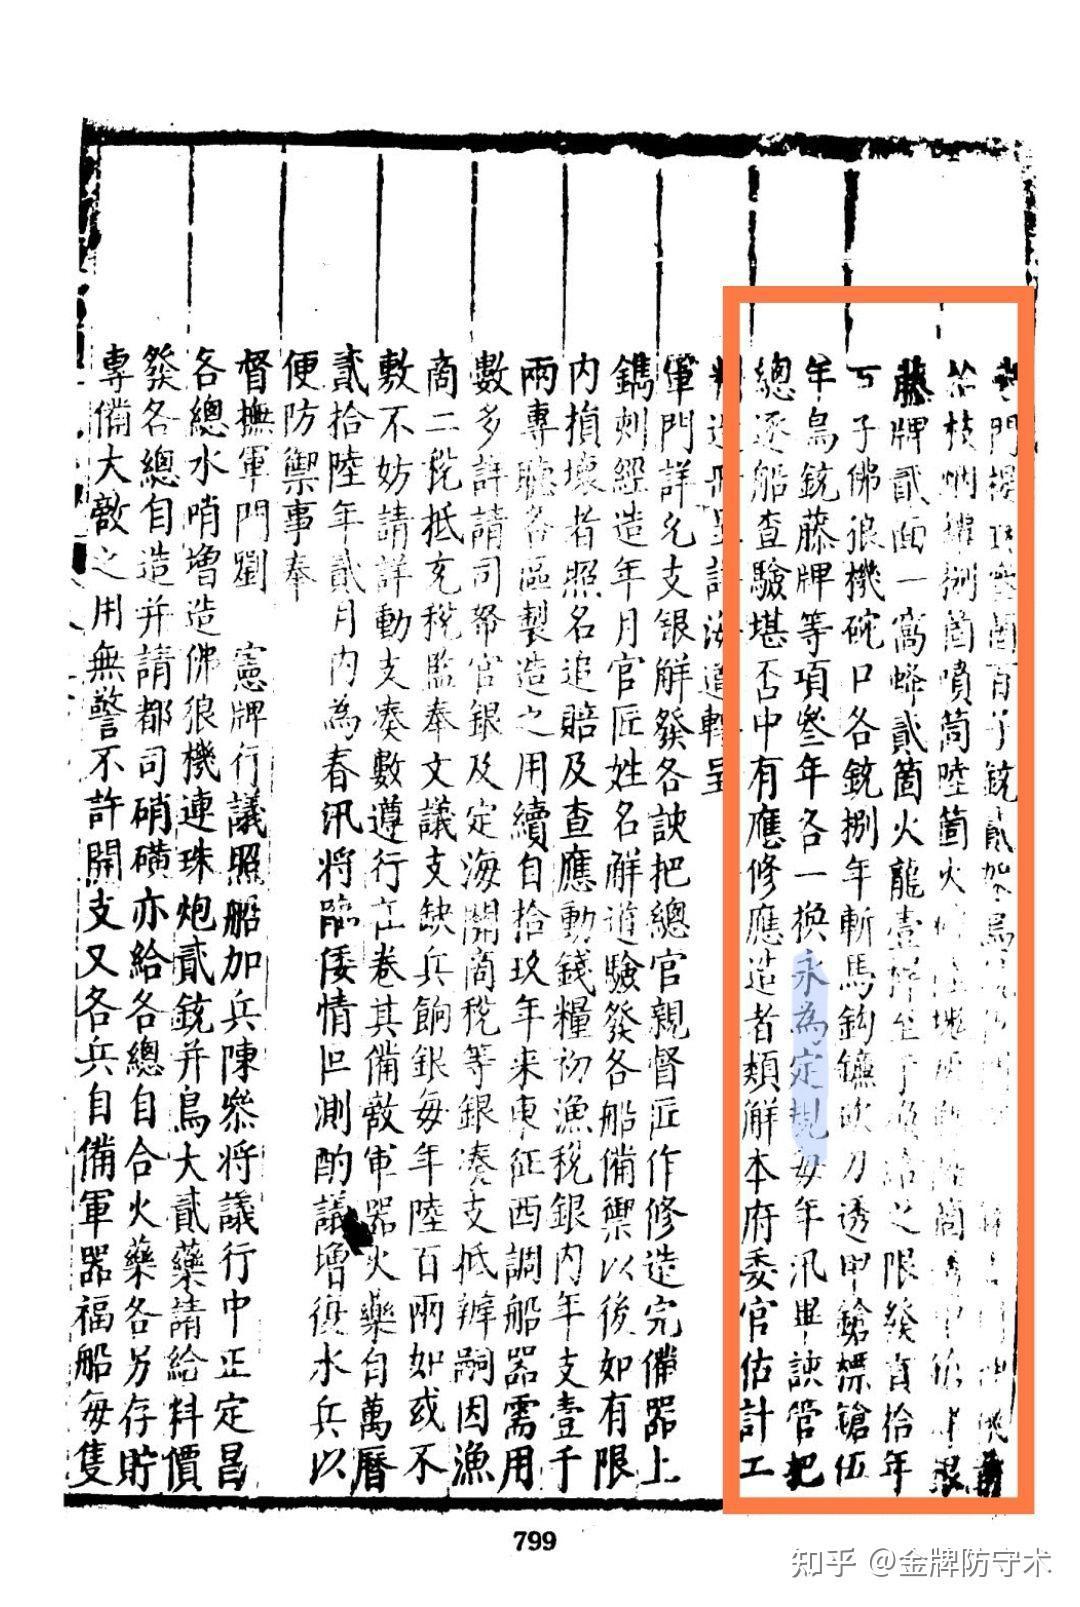 門提
枝 捌箇噴筒陸箇火
藤牌貳面一窩蜂貳箇火龍壹 之限發貢拾年
子佛狼機碗口各銃捌年斬馬鈎鐮砍刀透甲鎗標鎗伍
年鳥銃藤牌等項叄年各一換永為定規每年汛畢該管把
總逐船查驗堪否中有應修應造者類解本府委官估計工
料造冊呈詳海道轉呈
軍門詳允支銀解發各該把總官親督匠作修造完備器上
鐫刻經造年月官匠姓名解道驗發各船備禦以後如有限
內損壞者照名追賠及查應動錢糧初漁稅銀內年支壹千
兩專聽各區製造之用續自拾玖年來東征西調船器需用
數多詳請司帑官銀及定海關商稅等銀湊支抵辦嗣因漁
商二稅抵充稅監奉文議支缺兵餉銀每年陸百兩如或不
敷不妨請詳動支湊數遵行在卷其備敵軍器火藥自萬曆
貳拾陸年貳月內為春汛將臨倭情叵測酌議增復水兵以
便防禦事奉
督撫軍門劉 憲牌行議照船加兵陳叅將議行中正定昌
各總水哨增造佛狼機連珠炮貳銃并鳥大貳藥請給料價
發各總自造并請都司硝磺亦給各總自合火藥各另存貯
專備大敵之用無警不許開支又各兵自備軍器福船每隻
799
知乎 @金牌防守术